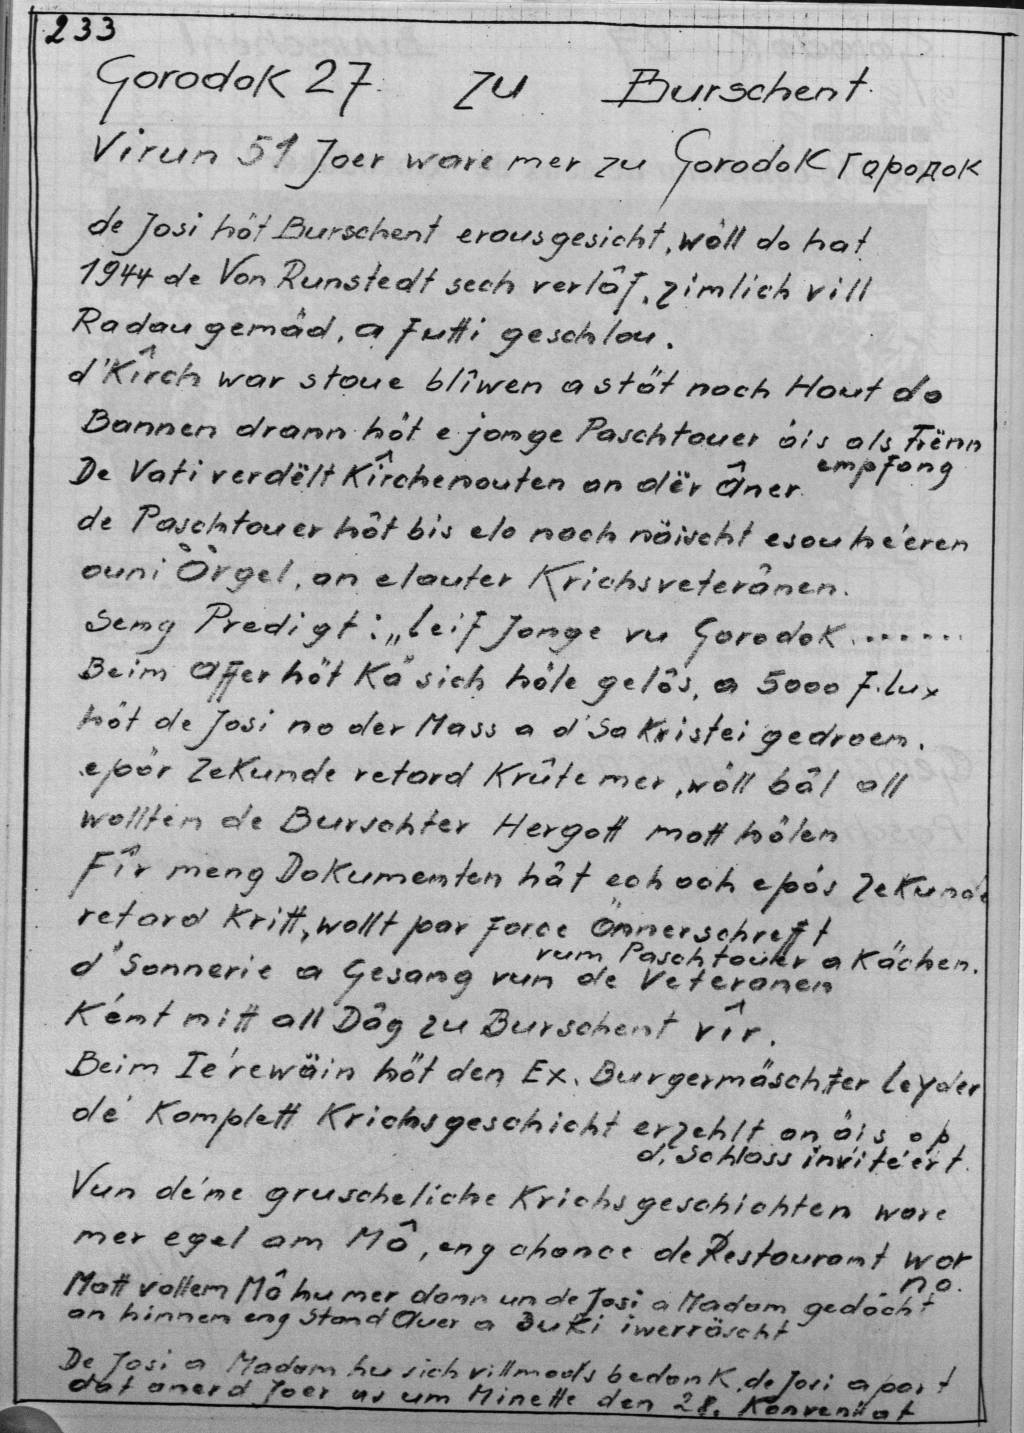 233
Gorodok 27 zu Burschent
Virun 51 Joer ware mer zu Gorodok Гародок
de Josi hôt Burschent erausgesicht, wöll do hat
1944 de Von Runstedt sech verlâf, zimlich vill
Radau gemâd, a futti geschlou.
d'Kîrch war stoue blîwen a stöt noch Hout do
Bannen drann hôt e jonge Paschtouer óis als Frënn
empfong
De Vati verdëlt Kîrchenouten an dër âner
de Paschtouer hôt bis elo noch näischt esou héeren
ouni Örgel, an elauter Krichsveterânen.
Seng Predigt: „Leif Jonge vu Gorodok.......
Beim Affer hôt Kä sich hôle gelôs, a 5000 F.lux
hôt de Josi no der Mass a d'Sakristei gedroen.
epôr Zekunde retard Krûte mer, wöll bâl all
wollten de Burschter Hergott matt hôlen
Fîr meng Dokumenten hât ech och epôs Zekunde
retard Kritt, wollt par force Önnerschreft
vum Paschtouer a Kächen.
d'Sonnerie a Gesang vun de Veteranen
Kënt nitt all Dâg zu Burschent vîr.
Beim Iérewäin hôt den Ex. Burgermäschter Leyder
dé Komplett Krichsgeschicht erzehlt an öis op
d, Schloss invitéert.
Vun déne gruscheliche Krichsgeschichten ware
mer egel am Mô, eng chance de Restaurant wor
no.
Matt vollem Mô hu mer dann un de Josi a Madam gedôcht
an hinnen eng Stand Auer a Buki iwerräscht
De Josi a Madam hu sich villmools bedankt, de Josi apart
dat anerd Joer as um Minette den 28. Konveniat